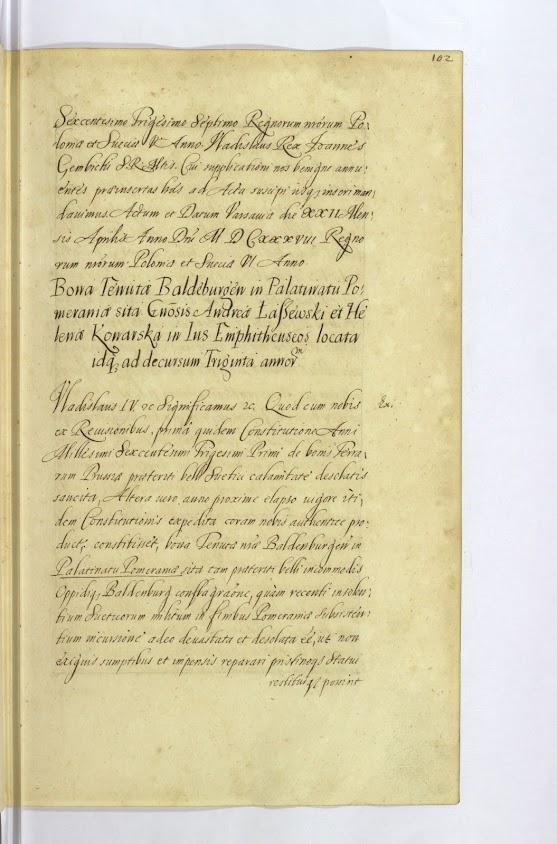 102
Sexcentesimo Trigesimo Septimo Regnorum nrõrum Po:
loniæ et Sueciæ V. Anno. Wladislaus Rex Joannes
Gembicki S.R.Mtis. Cui supplicationi nos benigne annu:
entes præinsertas ad Acta suscipi inseri man:
davimus. Actum et Datum Varsaviæ die XXII Men:
sis Aprilis Anno Dni M D C XXXVIII Regno
rum nrõrum Poloniæ et Sueciæ VI Anno
Bona Tenutæ Baldeburgen in Palatinatu Po:
meraniæ sita Gnõsis Andreæ Łassewski et He
lenæ Konarska in Ius Emphitheuscos locata
idq, ad decursum Triginta annorm
Wladislaus IV. &c Significamus &c. Quod cum nobis Ex.
ex Revisionibus, prima quidem Constitutione Anni
Millesimi Sexcentesimi Trigesimi Primi de bonis Terra:
rum Prussiæ præteriti belli Suetici calamitate desolatis
sancita, Altera vero, anno proxime elapso vigore iti:
dem Constitutionis expedita coram nobis authentice pro:
duct, constitisset, bona Tenutæ nræ Baldenburgen in
Palatinatu Pomeraniæ sita tam præteriti belli incommodis
Oppidiq, Baldenburg conflagraõne, quàm recenti insolen:
tium Suecorum militum in finibus Pomeraniæ subsisten:
tium incursione adeo devastata et desolata eẽ, ut non
exiguis sumptibus et impensis reparari pristinoqȝ statui
restitui possint